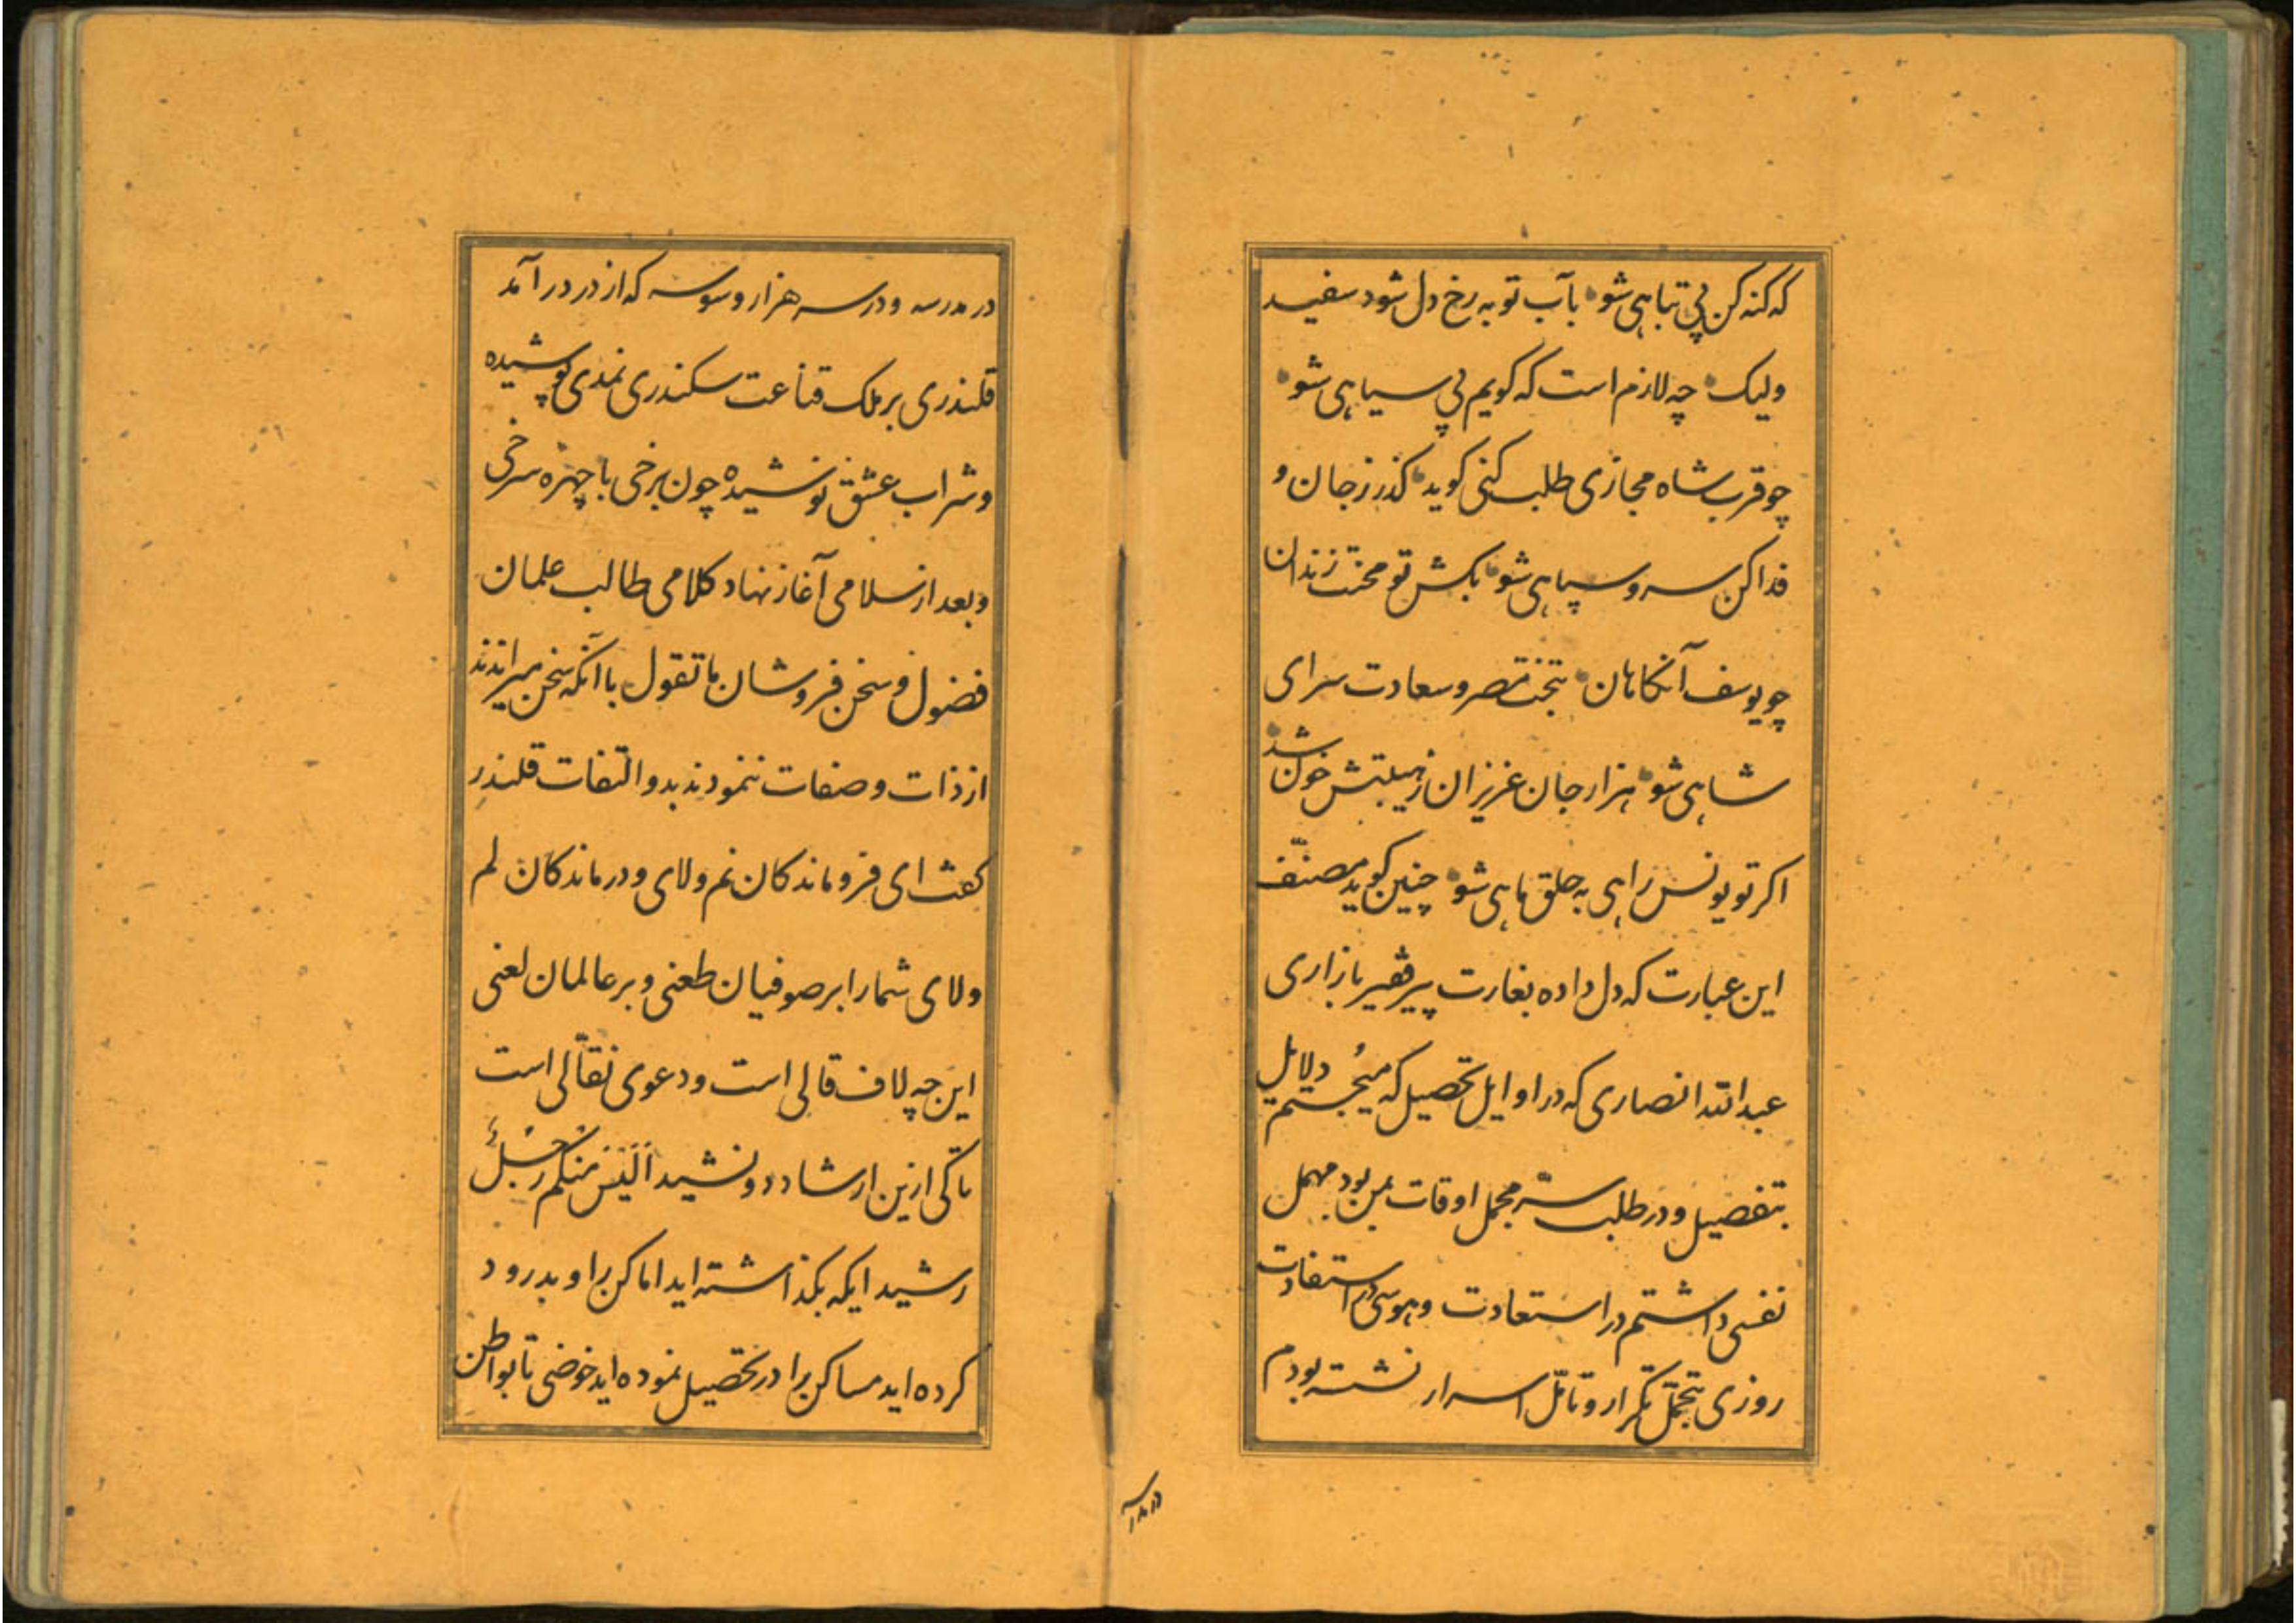 که کنه کن پی تباهی شو بآب توبه رخ دل شود سفید
ولیک چه لازم است که کویم پی سیاهی شو
چو قرب شاه مجازی طلب کنی کوید کذر ز جان و
فدا کن سر و سپاهی شو بکش تو محنت زندان
چو یوسف آنکاهان بتخت مصر و سعادت سرای
شاهی شو هزار جان عزیزان ز هیبتش خون شد
اکر تو یونس راهی به حلق ماهی شو چنین کوید مصنّف
این عبارت که دل داده بغارت پیر فقیر بازاری
عبدالله انصاری که در اوایل تحصیل که میجُستم دلایل
بتفصیل و در طلب سرّ مجمل اوقات من بود مهمل
نفسی داشتم در استعادت و هوسی در استفادت
روزی بتجمّل تکرار و تامّل اسرار نشسته بودم
در مدرسه
در مدرسه و در سر هزار وسوسه که از در در آمد
قلندری بر ملک قناعت سکندری نمدی پوشیده
و شراب عشق نوشیده چون برخی با چهره سرخی
و بعد از سلامی آغاز نهاد کلامی طالب علمان
فضول و سخن فروشان ما تقول با آنکه سخن میراندند
از ذات و صفات ننمودند بدو التفات قلندر
کفت ای فروماندکان نم ولای و درماندکان لم
ولای شما را بر صوفیان طعنی و بر عالمان لعنی
این چه لاف قالی است و دعوی نقّالی است
تا کی ازین ارشاد دو نشید اَلَیْسَ مِنْکُم رَجُلٌ
رشید ایکه بکذاشته اید اماکن را و بدرود
کرده اید مساکن را در تحصیل نموده اید خوضی تا بواطن